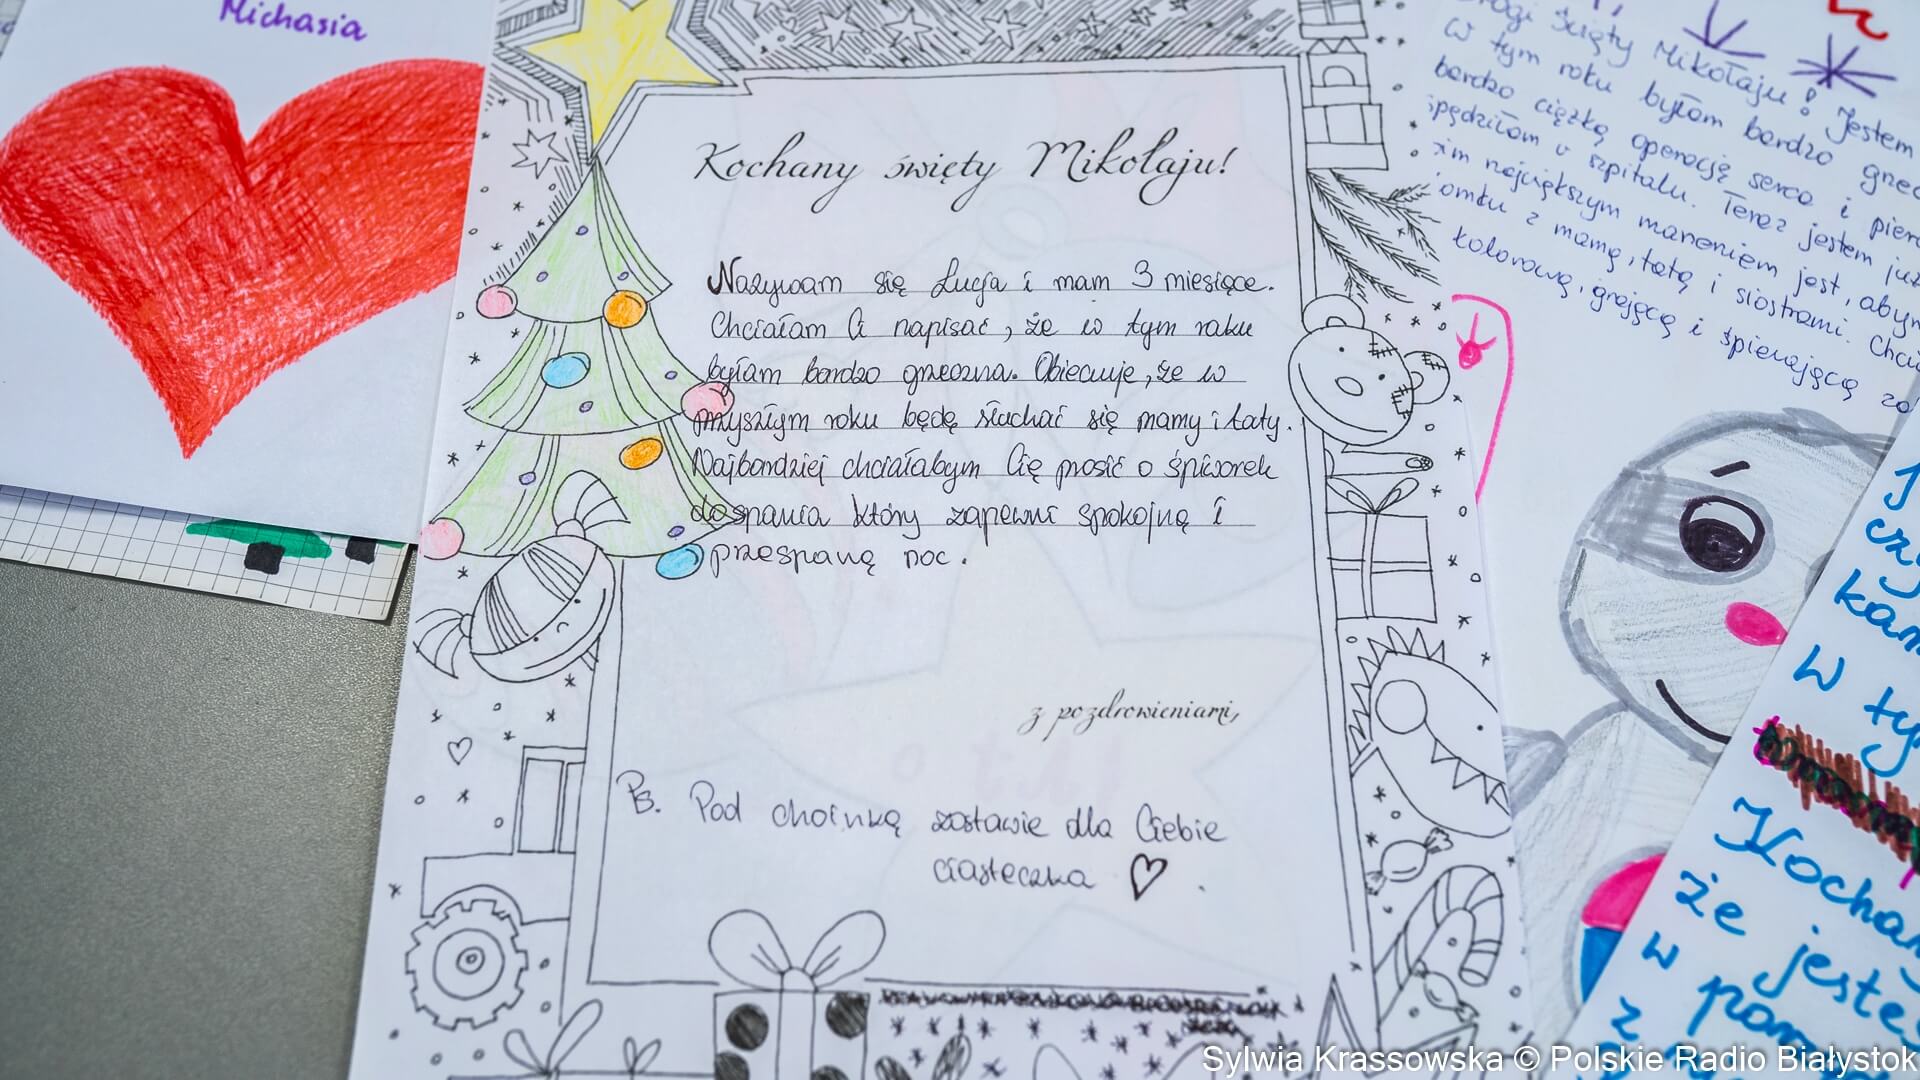 Michasia
Kochany święty Mikołaju!
Nazywam się Łucja i mam 3 miesiące.
Chciałam Ci napisać, że w tym roku
byłam bardzo grzeczna. Obiecuje, że w
przyszłym roku będę słuchać się mamy i taty.
Najbardziej chciałabym Cię prosić o śpiworek
do spania który zapewni spokojną i
przespaną noc.
z pozdrowieniami,
Ps. Pod choinką zostawie dla Ciebie
ciasteczka
Święty Mikołaju! Jestem
W tym roku byłam bardzo
bardzo ciężką operację serca i
spędziłam w szpitalu. Teraz jestem już
największym marzeniem jest,
z mamą, tatą i siostrami.
kolorową, grającą i śpiewającą
W
że
w
z
Sylwia Krassowska © Polskie Radio Białystok